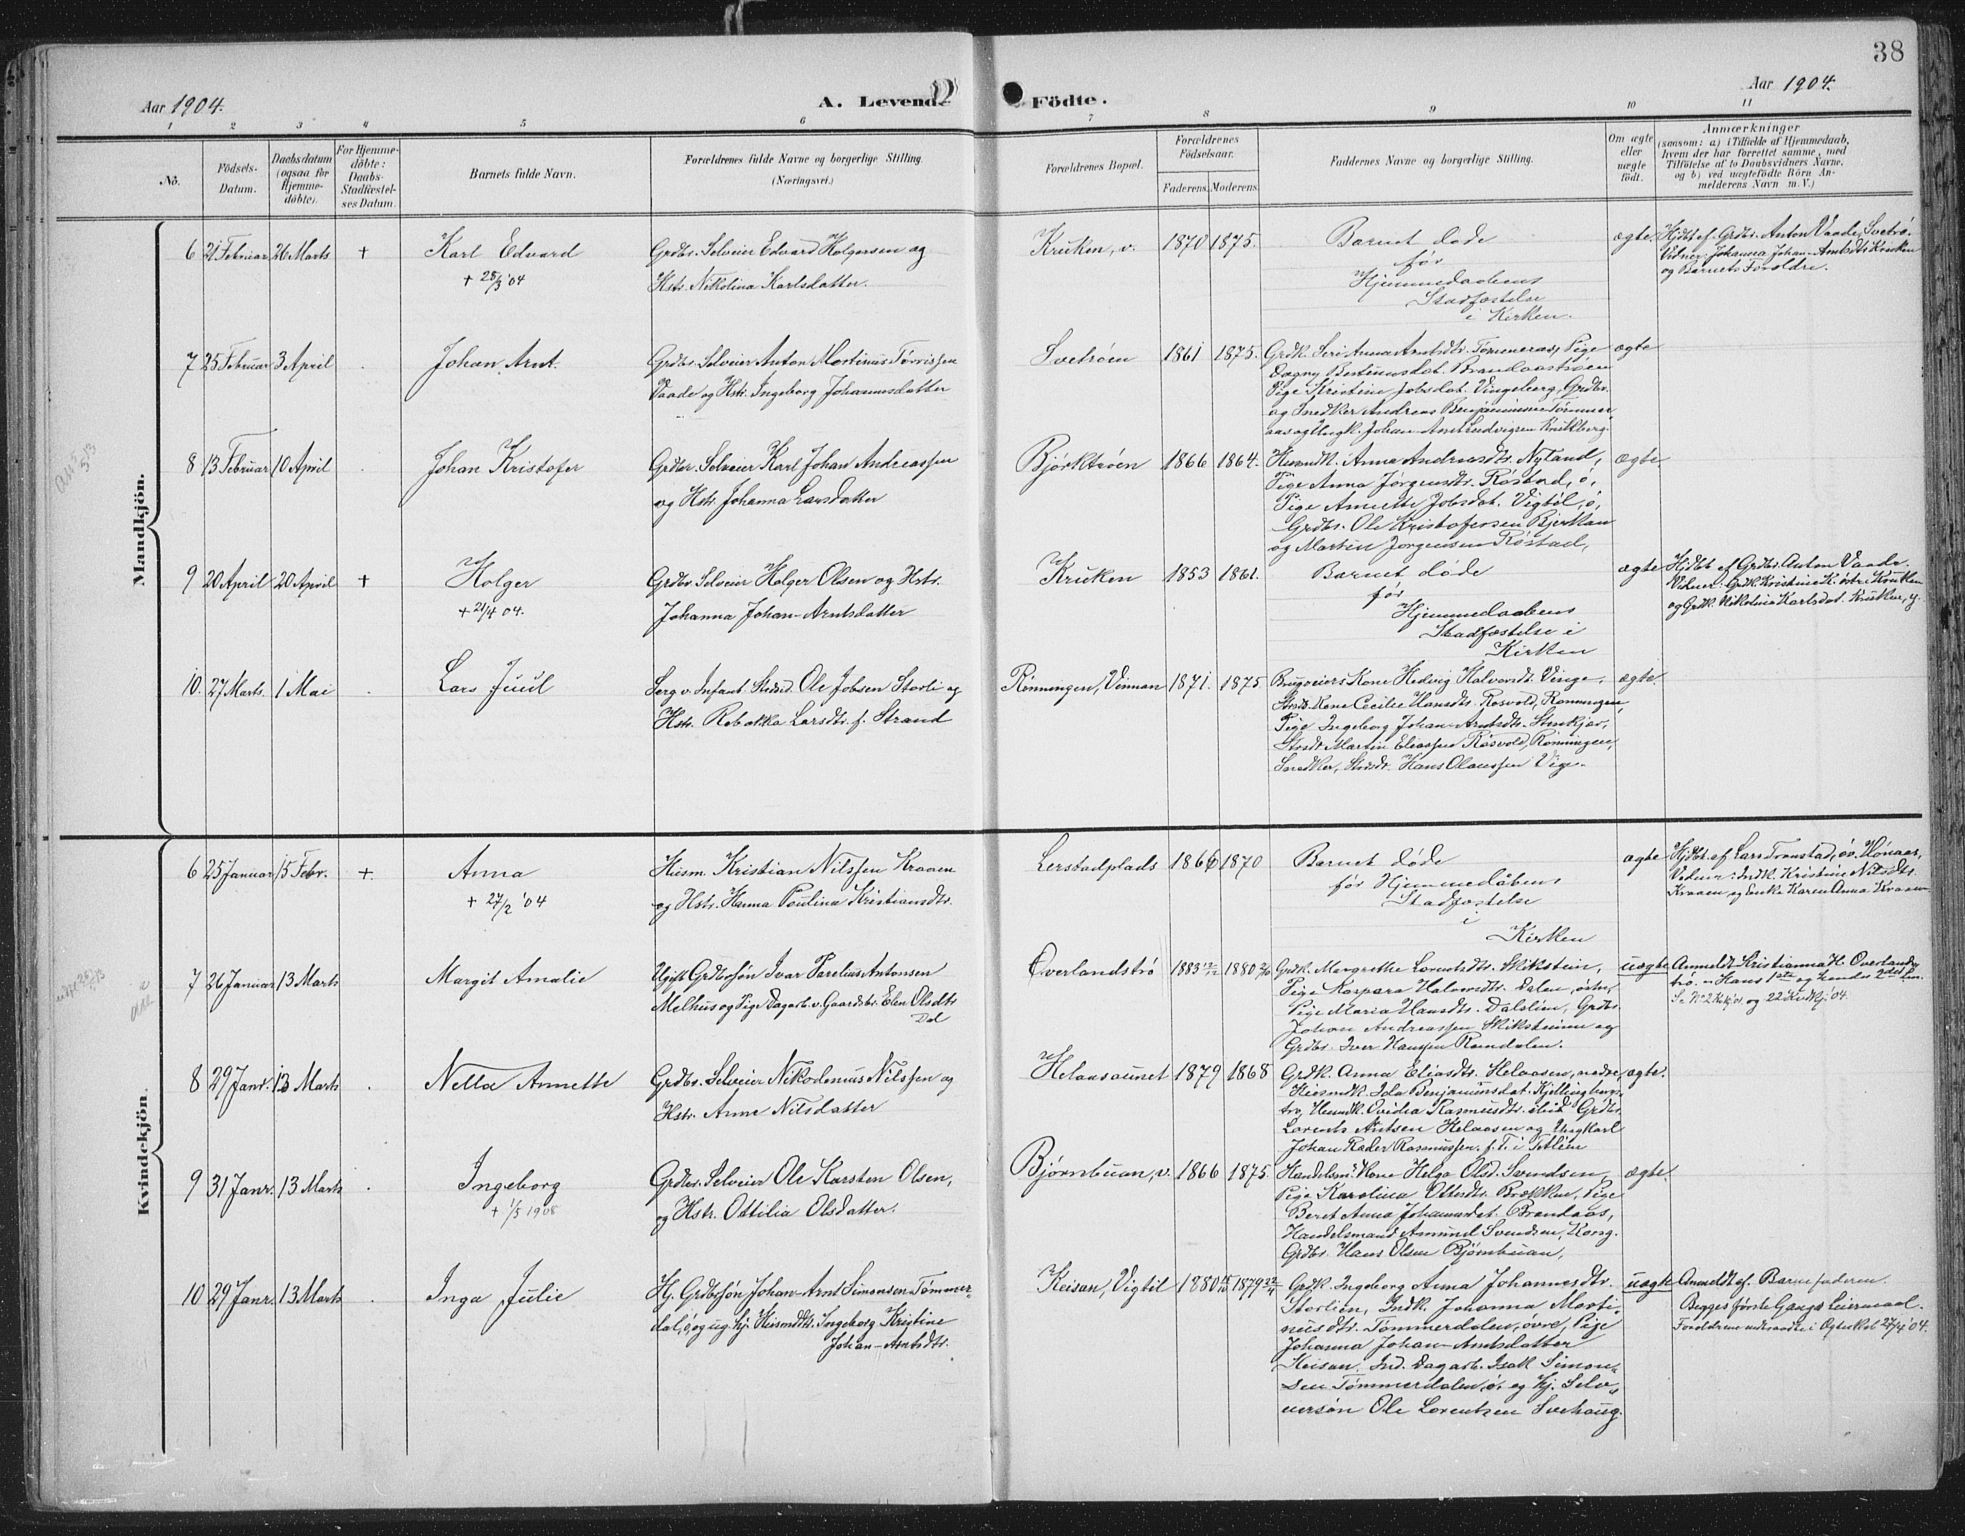 38
Aar 1904.
A. Levende Födte.
Aar 1904.
1 2 3 4 5 6 7 8 9 10 11
No.
Födsels-
Datum.
Daabsdatum
(ogsaa for
Hjemme-
døbte).
For Hjemme-
døbte:
Daabs-
Stadfæstel-
ses Datum.
Barnets fulde Navn.
Forældrenes fulde Navne og borgerlige Stilling.
(Næringsvei.)
Forældrenes Bopæl.
Forældrenes
Födselsaar.
Faderens. Moderens.
Faddernes Navne og borgerlige Stilling.
Om ægte
eller
uægte
født.
Anmærkninger
(saasom: a) i Tilfælde af Hjemmedaab,
hvem der har forrettet samme, med
Tilföielse af to Daabsvidners Navne,
og b) ved uægtefödte Börn An-
melderens Navn m. V.)
Mandkjön.
6 21 Februar 26 Marts + Karl Edvard
+ 28/3 '04
Grdbr. Selveier Edvard Holgersen og
Hstr. Nikolina Karlsdatter.
Kruken, v. 1870 1875.
Barnet døde
før
Hjemmedaabens
Stadfæstelse
i Kirken.
ægte.
Hjdbt af Grdbr. Anton Vaade, Svetrø.
Vidner: Johanna Johan-Arntsdtr Kruken
og Barnets Forældre.
7 25 Februar 3 April . Johan Arnt.
Grdbr. Selveier Anton Martinus Tørrissen
Vaade og Hstr. Ingeborg Johannesdatter
Svetrøen 1861 1875.
Grdk. Seri Anna Arntsdtr. Tømmeraas, Pige
Dagny Bertinusdat. Brandaastrøen
Pige Kristine Jobsdat. Vingeberg, Grdbr.
og Snedker Andreas Benjaminsen Tømmer
aas og Ungk. Johan-Arnt Ludvigsen Knutsberg.
ægte
8 13 Februar 10 April . Johan Kristofer
Grdbr. Selveier Karl Johan Andreassen
og Hstr. Johanna Larsdatter
Bjørktrøen 1866 1864.
Husmdk. Anna Andreasdtr. Nyland,
Pige Anna Jørgensdtr. Røstad, ö,
Pige Annette Jobsdat. Vigtil, ö,
Grdbr. Ole Kristofersen Bjerkan
og Martin Jørgensen Røstad,
ægte
9 20 April 20 April + Holger
+ 21/4 04.
Grdbr. Selveier Holger Olsen og Hstr.
Johanna Johan-Arntsdatter
Kruken 1853 1861.
Barnet døde
før
Hjemmedaabens
Stadfæstelse i
Kirken
ægte
Hjdbt af Grdbr. Anton Vaade.
Vidner: Grdk. Kristine K. østre Kruken
og Grdk. Nikolina Karlsdat. Kruken, y.
10. 27 Marts. 1 Mai . Lars Juul
Serg. v. Infant. Ole Jobsen Storli og
Hstr. Rebekka Larsdtr. f. Strand
Rönningen, Vinnan 1871. 1875.
Brugeiers Kone Hedvig Halvorsdt. Vinge,
Kone Cecilie Hansdtr. Rosvold, Rönningen,
Pige Ingeborg Johan-Arntsdtr. Stenkjær,
Martin Eliassen Rosvold, Rönningen,
Snedker, Hans Olaussen Vige.
ægte.
Kvindekjön.
6 25 Januar 15 Febr. + Anna
+ 27/2 '04
Husm. Kristian Nilssen Kraaen
og Hstr. Hanna Paulina Kristiansdtr.
Lerstadplads 1866 1870
Barnet døde
før Hjemmedåbens
Stadfæstelse
i
Kirken
ægte
Hjdbt. af Lars Tronstad, øv. Honaas,
Vidner: Indk. Kristine Nilsdtr.
Kraaen og Enke Karen Anna Kraaen
7 26 Januar 13 Marts Margit Amalie
Ugift Grdbrsön Ivar Parelius Antonsen
Melhus og Pige Dagarb. v. Gaardsbr. Elen Olsdtr
Dal
Overlandstrø 1883 12/12 1880 2/10
Grdk. Margrethe Lorentsdtr. Skikstein,
Pige Kaspara Halvorsdtr. Dalen, östre,
Pige Maria Hansdtr. Dalslien, Grdbr.
Johan Andreassen Skiksteinn og
Grdbr. Iver Hansen Ramdalen.
uægte
Anmeldt Kristianna H. Overlands-
trø. – Hans 1ste og hendes 2det Lm.
8 29 Janr. 13 Marts . Nella Annette
Grdbr. Selveier Nikodemus Nilssen og
Hstr. Anne Nilsdatter
Helaasaunet 1879 1868
Grdk. Anna Eliasdtr. Helaasen, nedre,
Husmdk. Ida Benjaminsdat. Kjellingberg-
trø, Husmdk. Ovidia Rasmusdtr. Grdbr.
Lorents Antsen Helaasen og Ungkarl
Johan Rasmussen f. T. i Tetlien
ægte.
9 31 Janr. 13 Marts . Ingeborg
+ 1/5 1908
Grdbr. Selveier Ole Karsten Olsen,
og Hstr. Ottilia Olsdatter.
Bjørnbuan, v. 1866 1875.
Handelsm. Kone Helga Olsd. Svendsen,
Pige Karolina Ottersdtr. Brækken, Pige
Beret Anna Johannesdat. Brandaas,
Handelsmand Amund Svendsen, Korsg.
Grdbr. Hans Olsen Bjørnbuan,
ægte.
10 29 Janr. 13 Marts . Inga Julie
Hj. Grdbrsön Johan-Arnt Simonsen Tømmer-
dal, ö, og ug. hj. Husmdtr. Ingeborg Kristine
Johan-Arntsdtr.
Keisan, Vigtil 1880 1879
Grdk. Ingeborg Anna Johannesdtr.
Storlien, Indk. Johanna Marti-
nusdtr. Tømmerdalen, övre, Pige
Johanna Johan-Arntsdatter
Keisan, Ind. Dagarb. Isak Simon-
sen Tømmerdalen, ö. og hj. Selv-
eiersön Ole Lorentsen Svehaug.
uægte
Anmeldt af Barnefaderen.
Begges første Gangs Leiermaal.
Forældrene indtraadte i Ægteskab 27/4 '04.